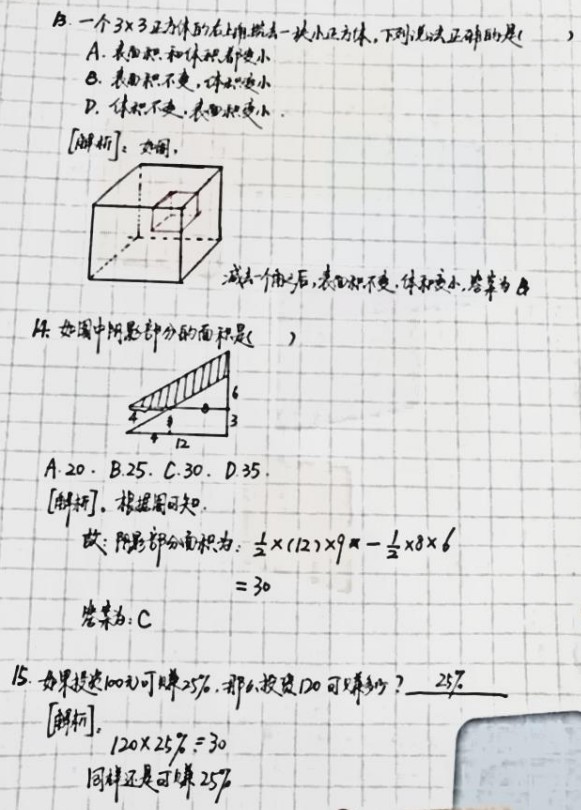 13. 一个3×3正方体的右上角挖去一块小正方体,下列说法正确的是( )
A. 表面积和体积都变小
B. 表面积不变,体积变小
D. 体积不变,表面积变小.
[解析]: 如图,
减去一个角之后,表面积不变,体积变小,答案为B
14. 如图中阴影部分的面积是( )
6
4 8
3
4 12
A.20. B.25. C.30. D.35.
[解析]。根据图可知.
故: 阴影部分面积为: 1/2×(12)×9 - 1/2×8×6
=30
答案为:C
15. 如果投资100元可赚25%,那么投资120可赚多少? 25%
[解析]。
120×25%=30
同样还是可赚25%